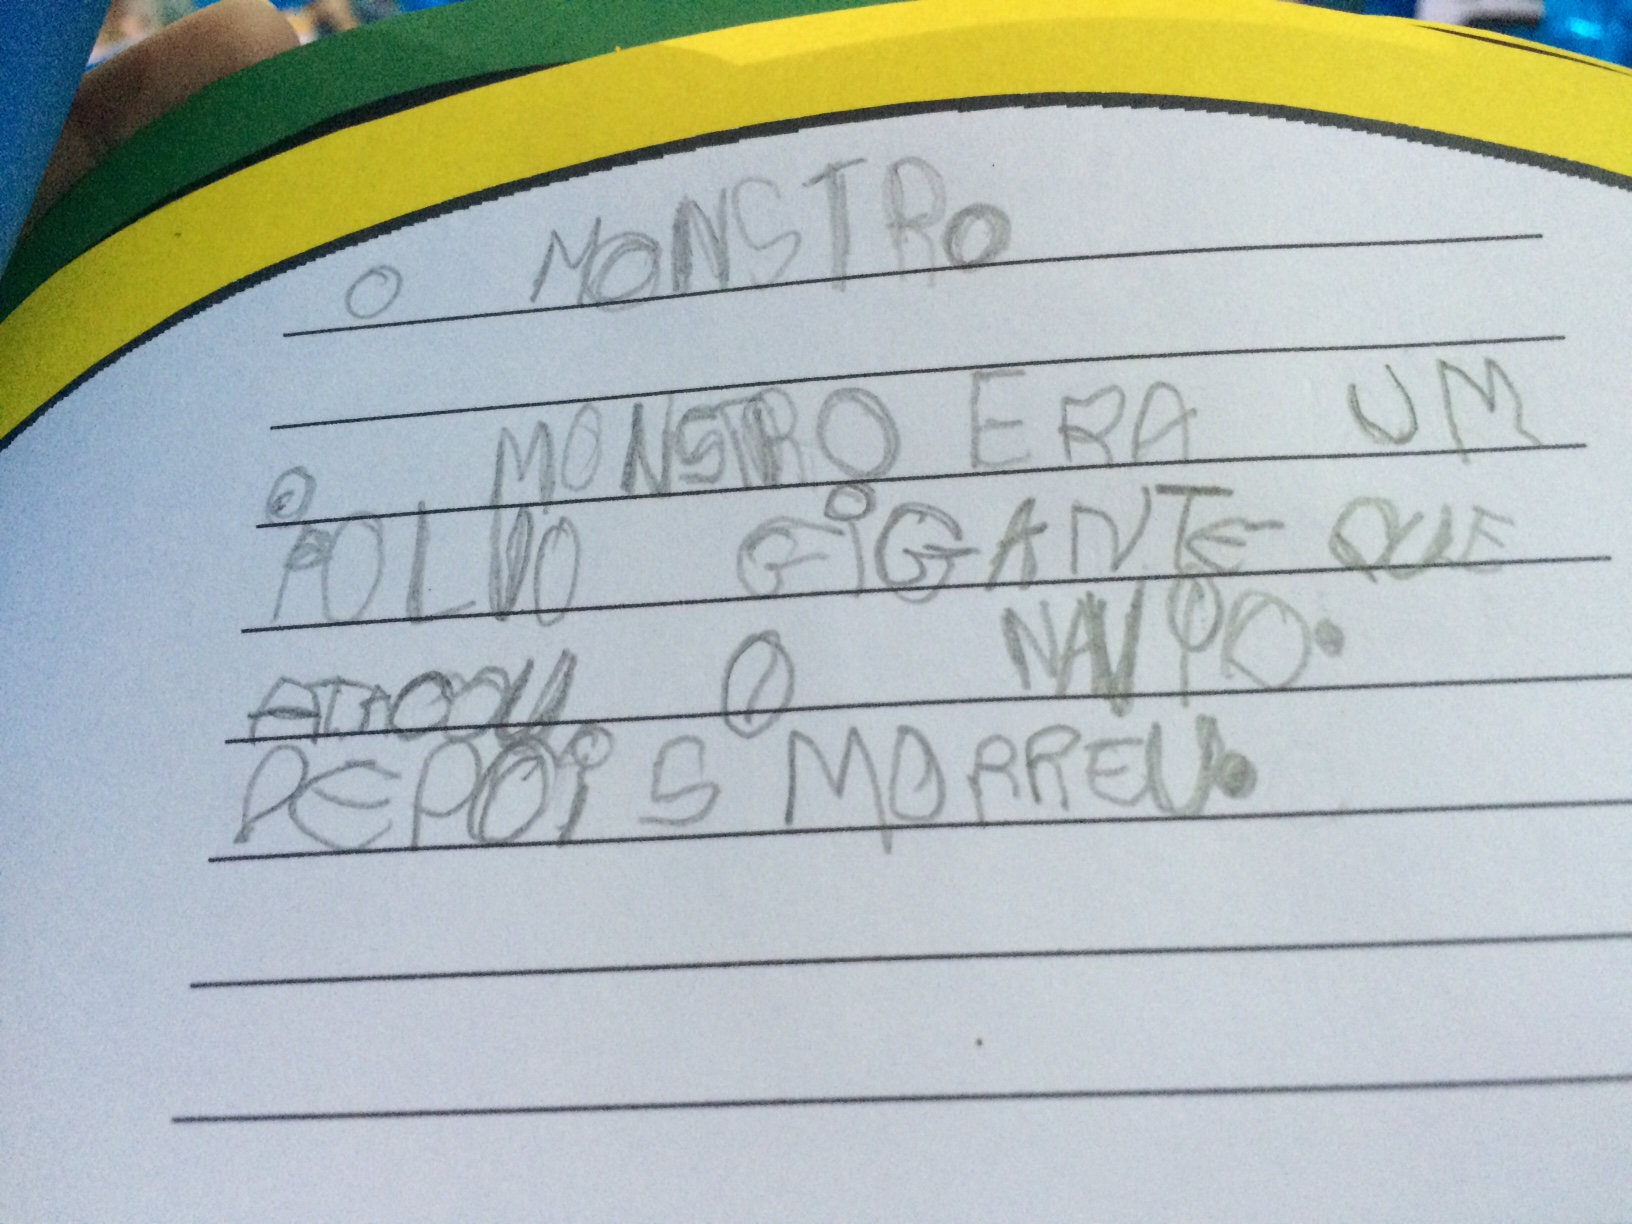 O MONSTRO
O MONSTRO ERA UM
POLVO GIGANTE QUE
ATACOU O NAVIO.
DEPOIS MORREU.